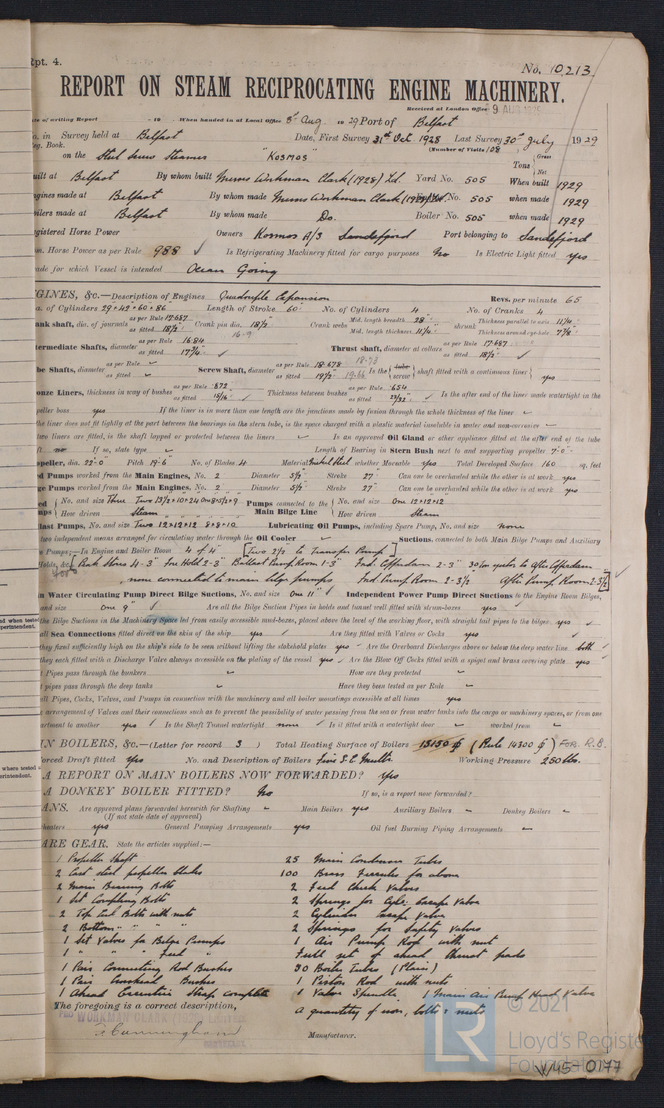 Rpt. 4.
No. 10,213.
REPORT ON STEAM RECIPROCATING ENGINE MACHINERY.
Received at London Office 9 AUG 1929
of writing Report 19 When handed in at Local Office 8th Aug 1929 Port of Belfast
in Survey held at Belfast Date, First Survey 31st Oct. 1928 Last Survey 30th July 1929
Reg. Book. (Number of Visits 108)
on the Steel Screw Steamer "KOSMOS" Tons Gross Net
built at Belfast By whom built Messrs Workman Clark (1928) Ltd. Yard No. 505 When built 1929
Engines made at Belfast By whom made Messrs Workman Clark (1928) Ltd. Engine No. 505 when made 1929
Boilers made at Belfast By whom made Do. Boiler No. 505 when made 1929
Registered Horse Power Owners Kosmos A/S Sandefjord Port belonging to Sandefjord
Nom. Horse Power as per Rule 988 ✓ Is Refrigerating Machinery fitted for cargo purposes No Is Electric Light fitted yes
Trade for which Vessel is intended Ocean Going
ENGINES, &c.—Description of Engines Quadruple Expansion Revs. per minute 65
Dia. of Cylinders 29 + 42 + 60 + 86" Length of Stroke 60" No. of Cylinders 4 No. of Cranks 4
Crank shaft, dia. of journals as per Rule 17.687 as fitted 18½" Crank pin dia. 18½" Crank webs Mid. length breadth 28" Mid. length thickness 11¼" shrunk Thickness parallel to axis 11¼" Thickness around eye-hole 7⅞"
Intermediate Shafts, diameter as per Rule 16.84 as fitted 17¾" ✓ Thrust shaft, diameter at collars as per Rule 17.687 as fitted 18½" ✓
Tube Shafts, diameter as per Rule as fitted Screw Shaft, diameter as per Rule 18.678 as fitted 19½" Is the tube screw shaft fitted with a continuous liner yes
Bronze Liners, thickness in way of bushes as per Rule .872 as fitted 15/16" Thickness between bushes as per Rule .654 as fitted 23/32" Is the after end of the liner made watertight in the
propeller boss yes If the liner is in more than one length are the junctions made by fusion through the whole length of the liner
the liner does not fit tightly at the part between the bearings in the stern tube, is the space charged with a plastic material insoluble in water and non-corrosive
two liners are fitted, is the shaft lapped or protected between the liners Is an approved Oil Gland or other appliance fitted at the after end of the tube
shaft no If so, state type Length of Bearing in Stern Bush next to and supporting propeller 7'-0"
Propeller, dia. 22'-0" Pitch 19'-6" No. of Blades 4 Material Nickel Steel whether Moveable yes Total Developed Surface 160 sq. feet
Feed Pumps worked from the Main Engines, No. 2 Diameter 5½" Stroke 27" Can one be overhauled while the other is at work yes
Bilge Pumps worked from the Main Engines, No. 2 Diameter 5½" Stroke 27" Can one be overhauled while the other is at work yes
Feed Pumps No. and size Three Two 13½×10×24 One 8×5½×9 Pumps connected to the Main Bilge Line No. and size One 12×12×12"
How driven Steam How driven Steam
Ballast Pumps, No. and size Two 12×12×12 8×8×10 Lubricating Oil Pumps, including Spare Pump, No. and size none
two independent means arranged for circulating water through the Oil Cooler Suctions, connected to both Main Bilge Pumps and Auxiliary
Pumps;—In Engine and Boiler Room 4 of 4" [Two 2½" to Transfer Pump]
Holds, &c.
none connected to main bilge pumps
Main Water Circulating Pump Direct Bilge Suctions, No. and size One 11" ✓ Independent Power Pump Direct Suctions to the Engine Room Bilges,
and size One 9" ✓ Are all the Bilge Suction Pipes in holds and tunnel well fitted with strum-boxes yes
the Bilge Suctions in the Machinery Space led from easily accessible mud-boxes, placed above the level of the working floor, with straight tail pipes to the bilges yes ✓
all Sea Connections fitted direct on the skin of the ship yes ✓ Are they fitted with Valves or Cocks yes
they fixed sufficiently high on the ship's side to be seen without lifting the stokehold plates yes Are the Overboard Discharges above or below the deep water line both
they each fitted with a Discharge Valve always accessible on the plating of the vessel yes Are the Blow Off Cocks fitted with a spigot and brass covering plate yes
Pipes pass through the bunkers How are they protected
pipes pass through the deep tanks Have they been tested as per Rule
all Pipes, Cocks, Valves, and Pumps in connection with the machinery and all boiler mountings accessible at all times yes
arrangement of Valves and their connections such as to prevent the possibility of water passing from the sea or from water tanks into the cargo or machinery spaces, or from one
compartment to another yes ✓ Is the Shaft Tunnel watertight none Is it fitted with a watertight door worked from
MAIN BOILERS, &c.—(Letter for record 3 ) Total Heating Surface of Boilers (Rule 14300 ф) FOR R.B.
Forced Draft fitted Yes No. and Description of Boilers Five S.E. Multi. Working Pressure 250 lbs.
A REPORT ON MAIN BOILERS NOW FORWARDED? Yes
A DONKEY BOILER FITTED? No If so, is a report now forwarded?
PLANS. Are approved plans forwarded herewith for Shafting Main Boilers yes Auxiliary Boilers Donkey Boilers
(If not state date of approval)
heaters yes General Pumping Arrangements yes Oil fuel Burning Piping Arrangements
SPARE GEAR. State the articles supplied:—
1 Propeller Shaft
2 Cast steel propeller blades
2 Main Bearing Bolts
1 Set Coupling Bolts
2 Top End Bolts with nuts
2 Bottom " " "
1 Set Valves for Bilge Pumps
1 " " " Feed "
1 Pair Connecting Rod Bushes
1 Pair Crosshead Bushes
1 Ahead Eccentric Strap complete
25 Main Condenser Tubes
100 Brass Ferrules for above
2 Feed Check Valves
2 Springs for Cyls. Escape Valve
2 Cylinder escape Valve
2 Springs for Safety Valves
1 Air Pump Rod with nut
Full set of ahead thrust pads
30 Boiler Tubes (Plain)
1 Piston Rod with nuts
1 Valve Spindle 1 Main Air Pump Head Valve
a quantity of iron, bolts & nuts
The foregoing is a correct description,
FOR WORKMAN CLARK (1928) LIMITED
Manufacturer.
© 2021
LR
Lloyd's Register
Foundation
W45-0177